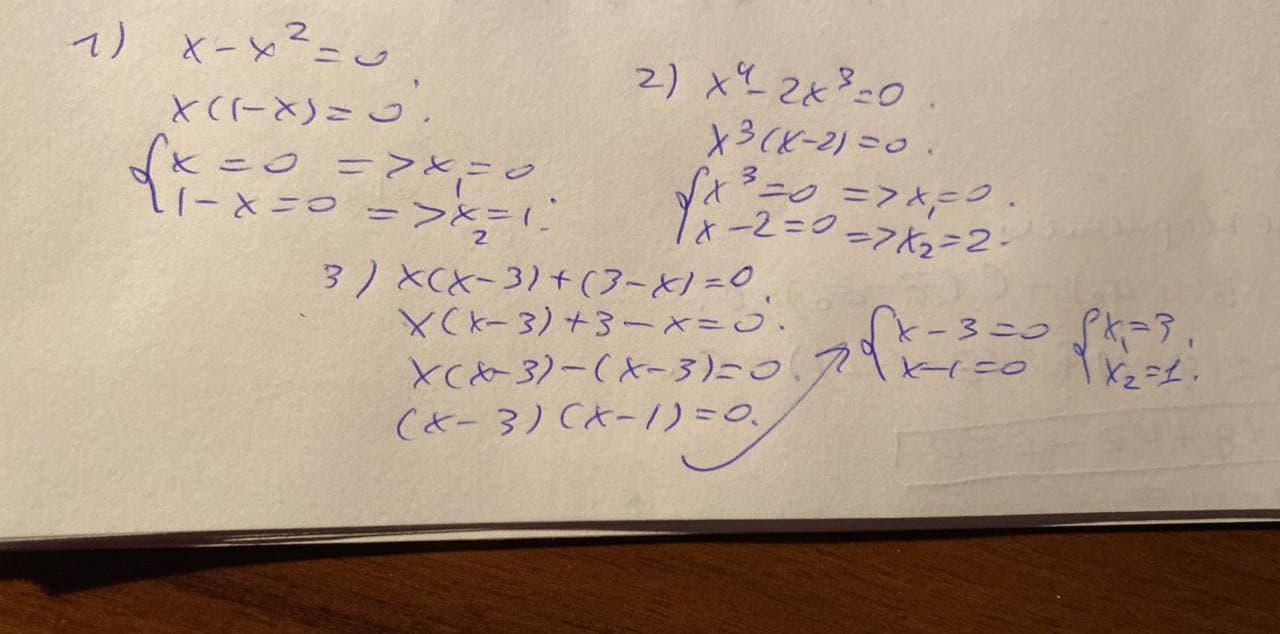 1) x - x² = 0.
x(1-x) = 0.
{x = 0 => x₁ = 0
1 - x = 0 => x₂ = 1.
2) x⁴ - 2x³ = 0.
x³(x-2) = 0.
{x³ = 0 => x₁ = 0.
x - 2 = 0 => x₂ = 2.
3) x(x-3) + (3-x) = 0.
x(x-3) + 3 - x = 0.
x(x-3) - (x-3) = 0.
(x-3)(x-1) = 0.
{x - 3 = 0 {x₁ = 3.
x - 1 = 0 x₂ = 1.